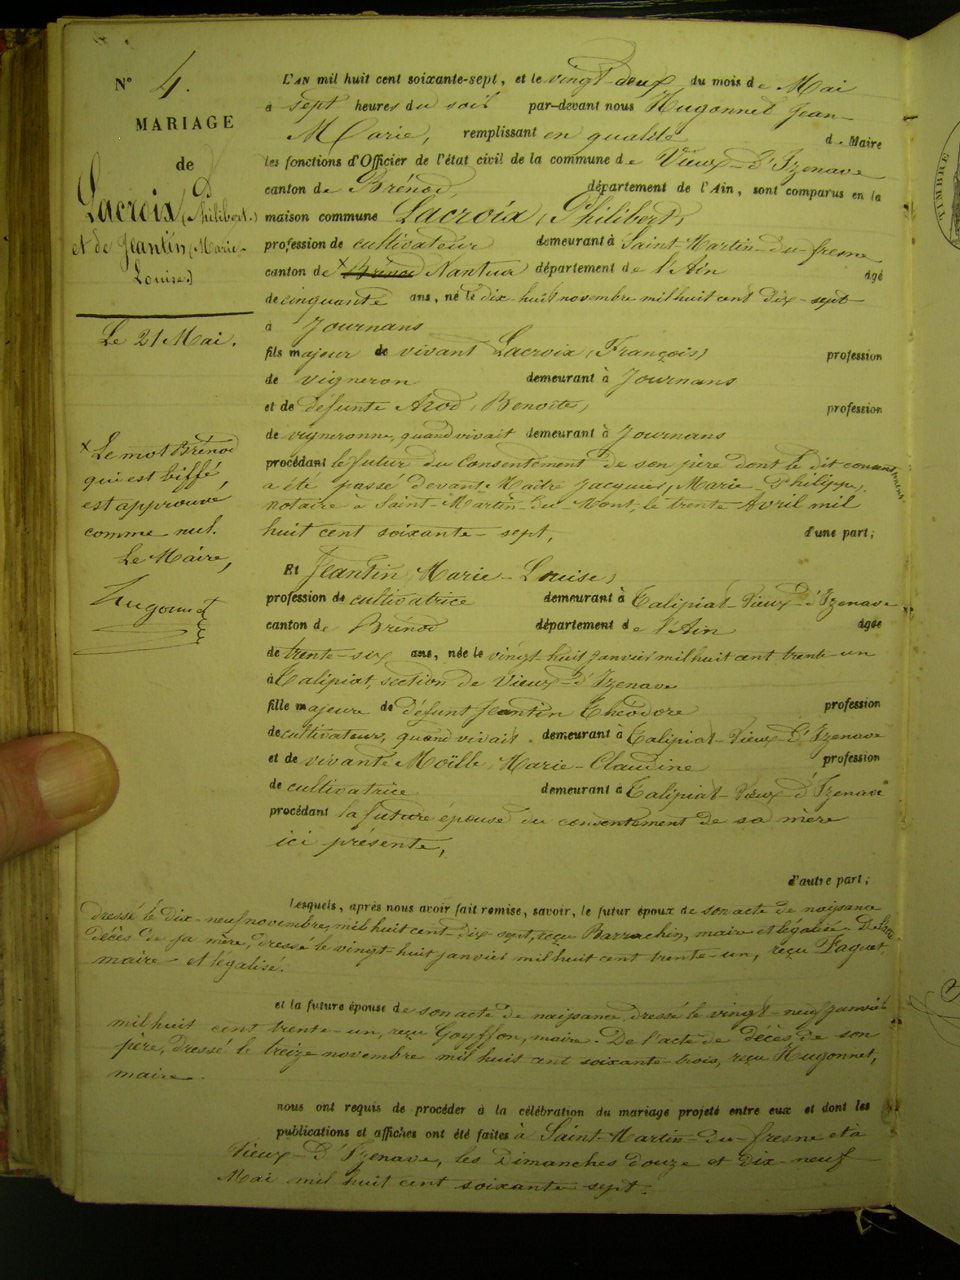 N° 4.
MARIAGE
de
Lacroix (Philibert.)
et de Jeantin (Marie-
Louise)
Le 21 Mai.
x Le mot Brénod
qui est biffé,
est approuvé
comme nul.
Le Maire,
Hugonnet
L'AN mil huit cent soixante-sept, et le vingt-deux du mois de Mai
à sept heures du soir par-devant nous Hugonnet Jean-
Marie, remplissant en qualité de Maire
les fonctions d'Officier de l'état civil de la commune de Vieux-d'Izenave
canton de Brénod, département de l'Ain, sont comparus en la
maison commune Lacroix (Philibert)
profession de cultivateur demeurant à Saint-Martin-du-fresne
canton de x Brénod Nantua département de l'Ain âgé
de cinquante ans, né le dix-huit novembre mil huit cent dix-sept
à Journans
fils majeur de vivant Lacroix (François) profession
de vigneron demeurant à Journans
et de défunte Arod (Benoîte) profession
de vigneronne, quand vivait demeurant à Journans
procédant le futur du consentement de son père dont le dit consentement
a été passé devant Maître Jacquier, Marie Philippe,
notaire à Saint-Martin-du-Mont, le trente Avril mil
huit cent soixante-sept, d'une part;
Et Jeantin Marie-Louise,
profession de cultivatrice demeurant à Talipiat-Vieux-d'Izenave
canton de Brénod département de l'Ain âgée
de trente-six ans, née le vingt-huit janvier mil huit cent trente-un
à Talipiat, section de Vieux-d'Izenave
fille majeure de défunt Jeantin Théodore profession
de cultivateur, quand vivait demeurant à Talipiat-Vieux-d'Izenave
et de vivante Moëlle Marie-Claudine profession
de cultivatrice demeurant à Talipiat-Vieux d'Izenave
procédant la future épouse du consentement de sa mère
ici présente,
d'autre part;
Lesquels, après nous avoir fait remise, savoir, le futur époux de son acte de naissance
dressé le dix-neuf novembre, mil huit cent dix sept, reçu Barrachin, maire et légalisé. De l'acte
décès de sa mère, dressé le vingt-huit janvier mil huit cent trente-un, reçu Paquet
maire et légalisé.
et la future épouse de son acte de naissance, dressé le vingt-neuf janvier
mil huit cent trente-un, reçu Goyffon, maire. De l'acte de décès de son
père, dressé le treize novembre mil huit cent soixante-trois, reçu Hugonnet,
maire.
nous ont requis de procéder à la célébration du mariage projeté entre eux et dont les
publications et affiches ont été faites à Saint-Martin-du-fresne et à
Vieux-d'Izenave, les Dimanches douze et dix-neuf
Mai mil huit cent soixante sept.
TIMBRE